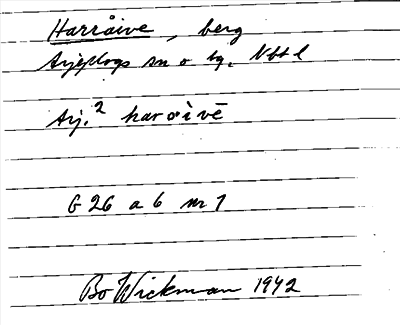 Harråive, berg
Arjeplogs sn o tg. Nbtl
Arj.² haroi̯vē
G 26 a 6 nr 1
Bo Wickman 1942